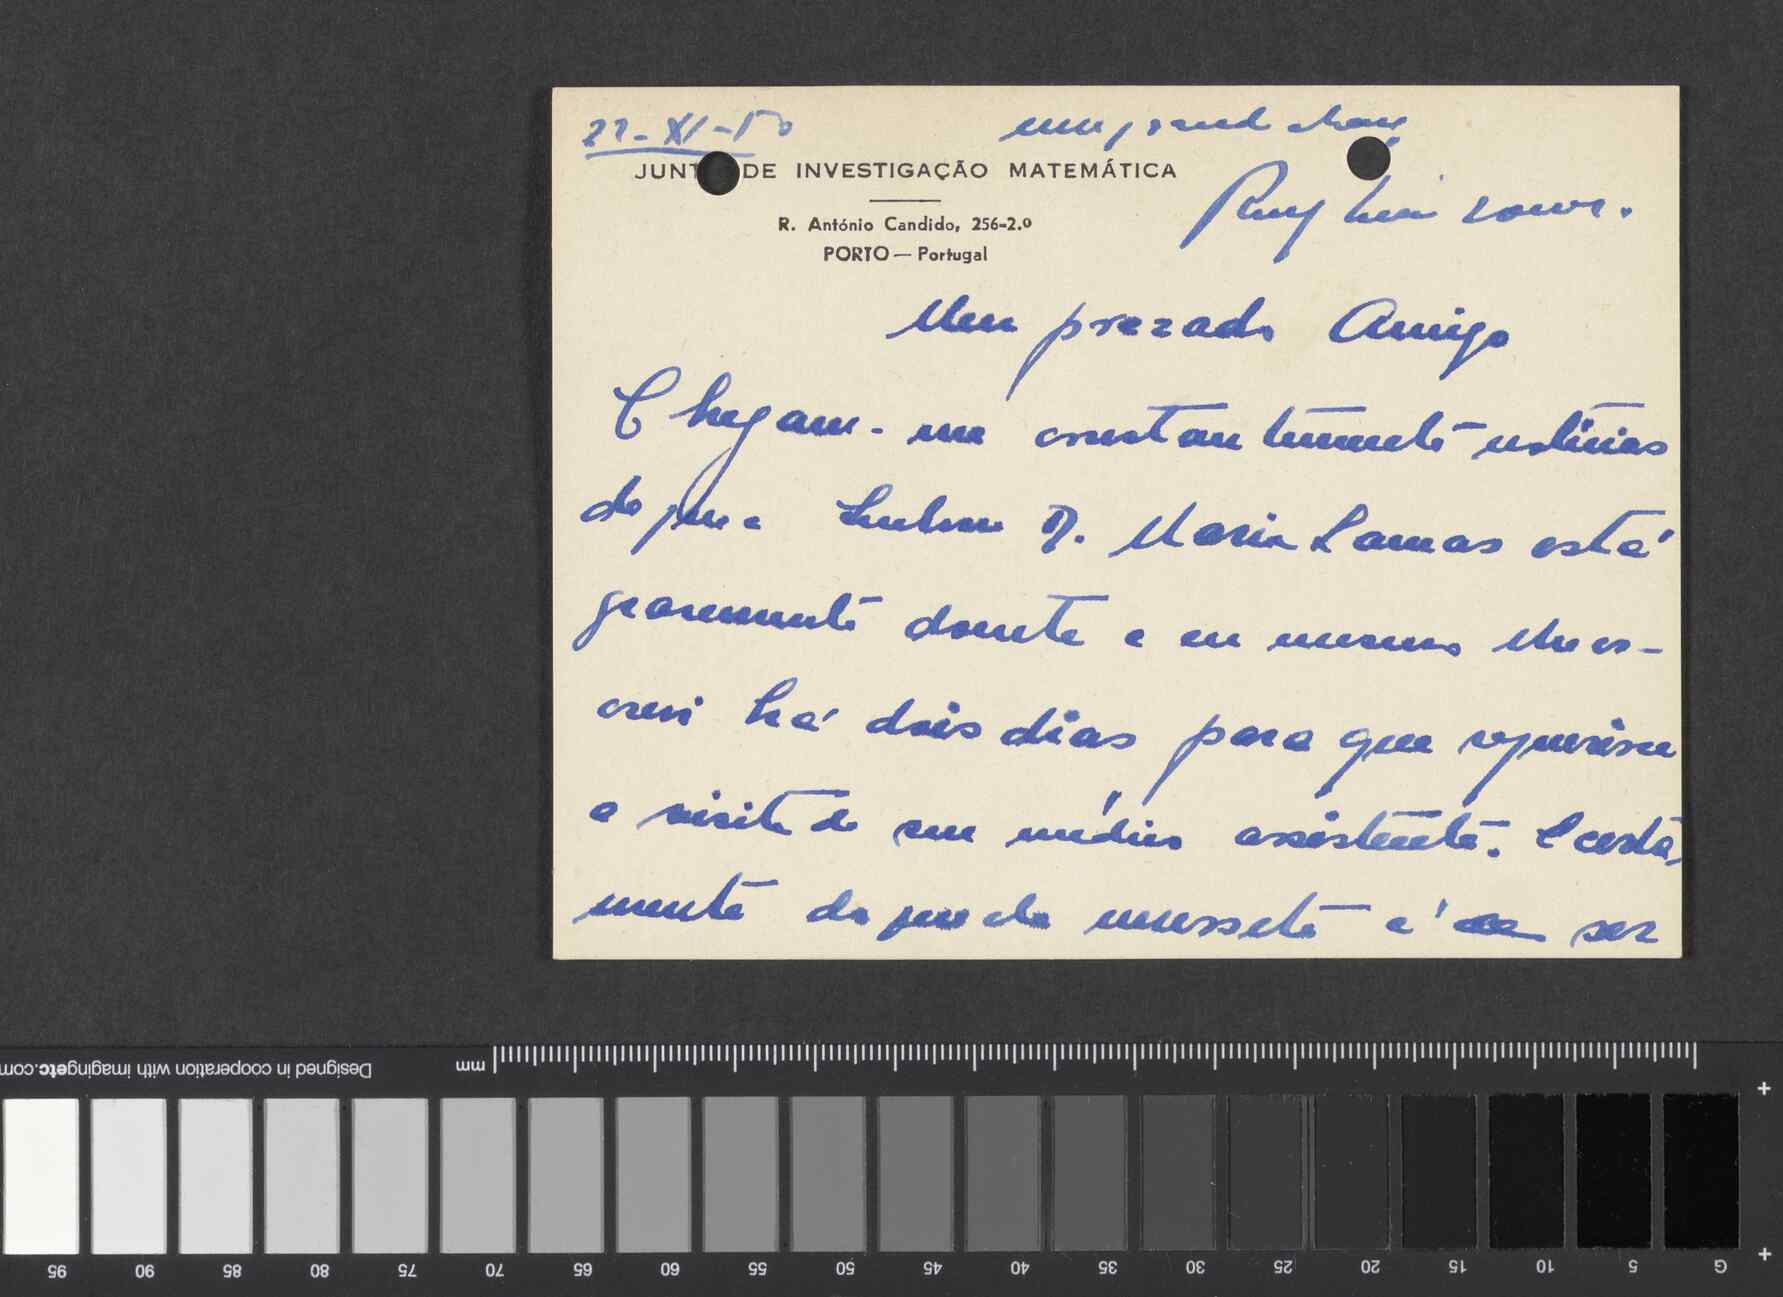 22-XI-50
um grande abraço
JUNTA DE INVESTIGAÇÃO MATEMÁTICA
Ruy Luís Gomes.
R. António Candido, 256-2.º
PORTO — Portugal
Meu prezado Amigo
Chegam-me constantemente notícias
de que a Senhora D. Maria Lamas está
gravemente doente e eu mesmo lhe es-
crevi há dois dias para que requeira
a visita do seu médico assistente. Certa-
mente do que ela necessita é ser
mm
Designed in cooperation with imagingetc.com
95 90 85 80 75 70 65 60 55 50 45 40 35 30 25 20 15 10 5 G